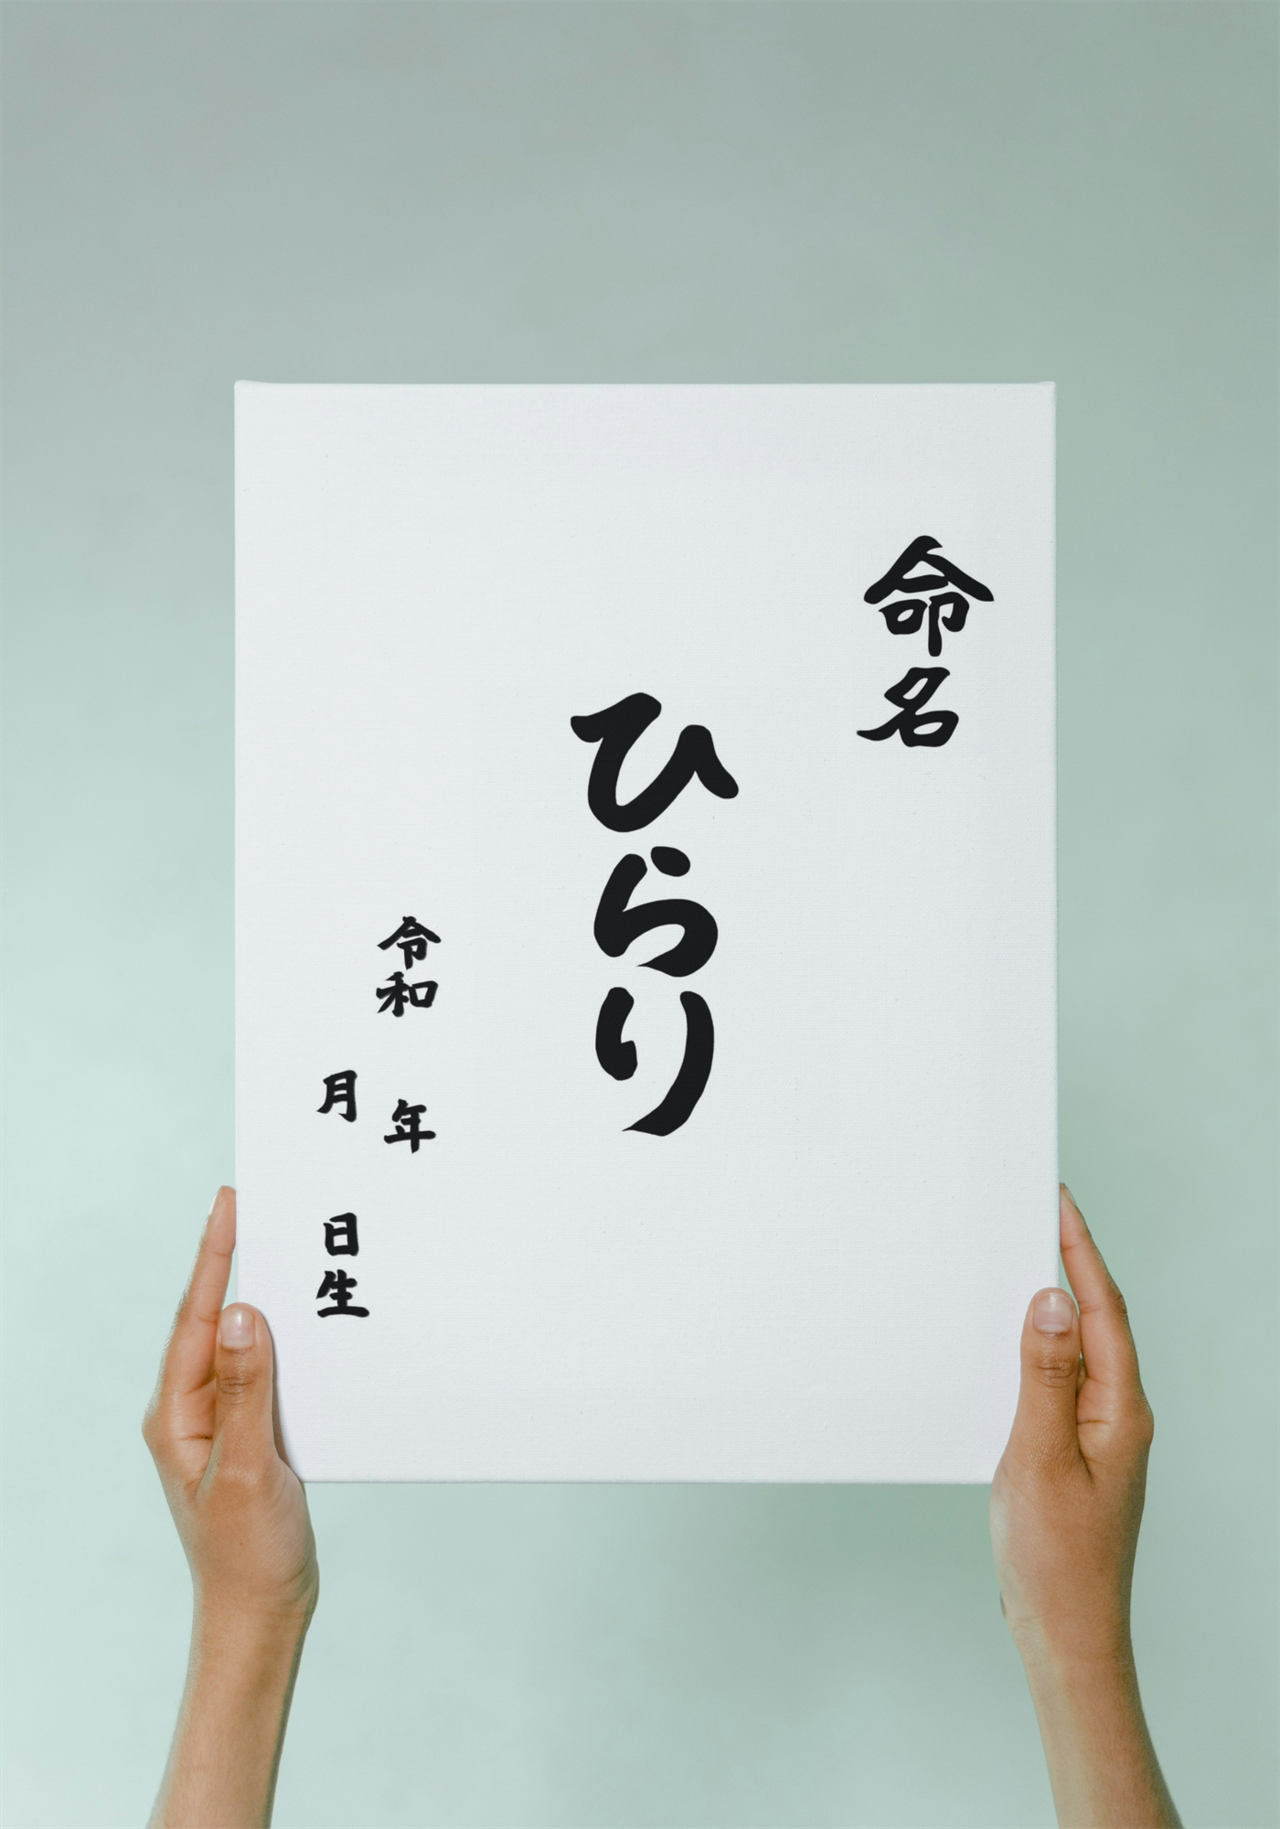 命名
ひらり
令和 年
月 日生